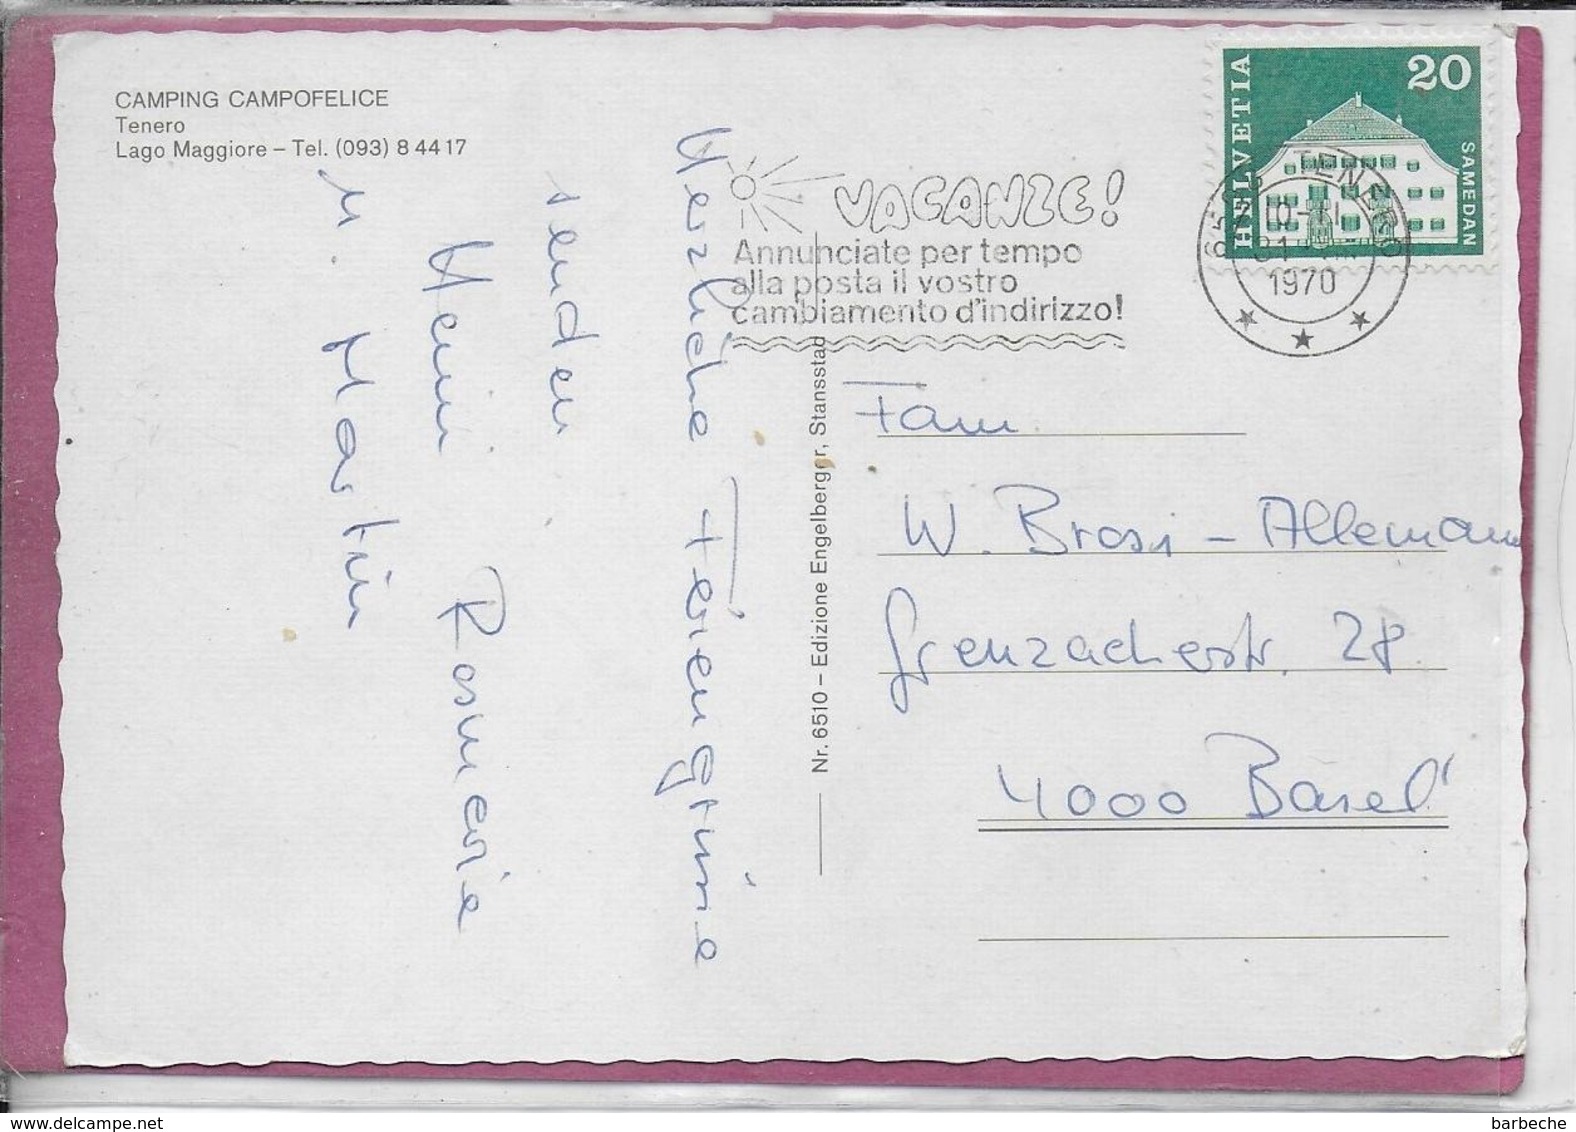 CAMPING CAMPOFELICE
Tenero
Lago Maggiore – Tel. (093) 8 44 17
Herzliche Feriengrüsse
senden
Heini Rosmarie
u. Martin
Nr. 6510 – Edizione Engelberger, Stansstad
VACANZE!
Annunciate per tempo
alla posta il vostro
cambiamento d'indirizzo!
HELVETIA
20
SAMEDAN
TENERO
1970
Fam.
W. Brosi - Allemann
Grenzacherstr. 28
4000 Basel
barbeche